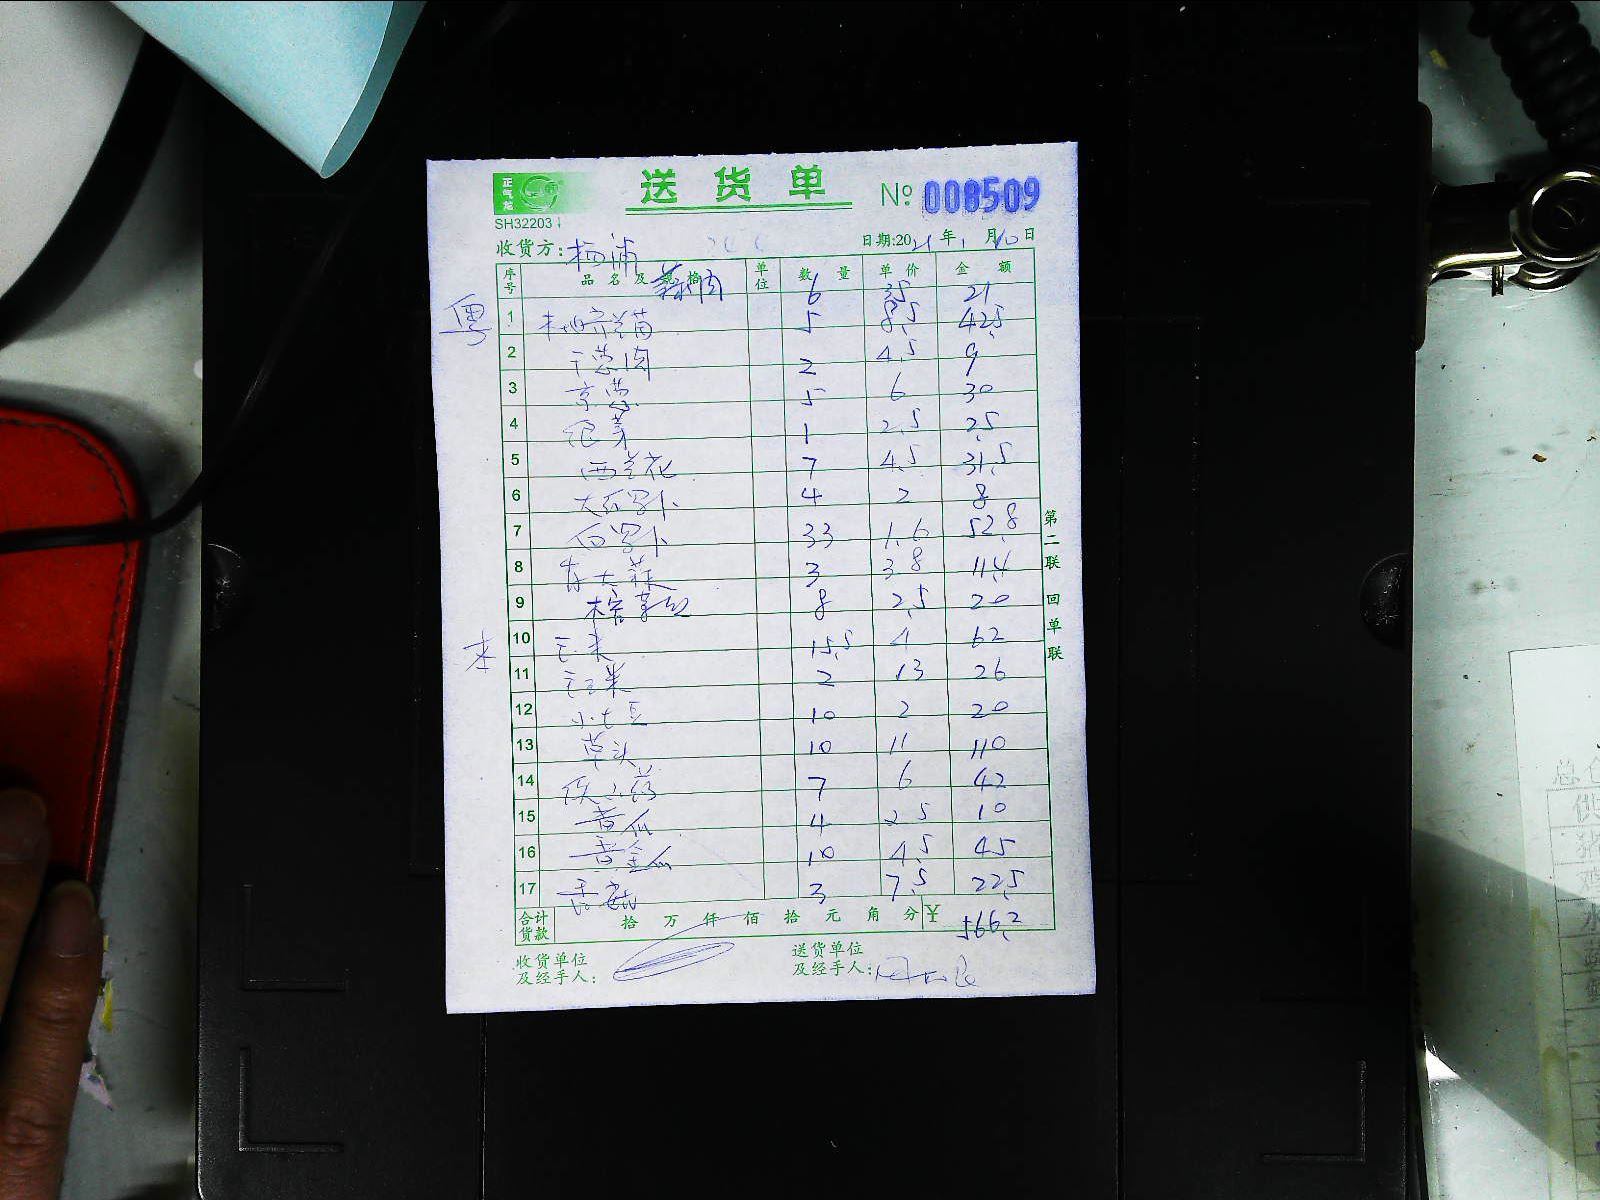 正气龙
送货单 № 008509
SH32203
收货方: 杨浦 日期:2021年1月10日
序号 品名及规格 单位 数量 单价 金额
蒜肉 6 3.5 21
1 杭茄 5 8.5 42.5
2 干葱肉 2 4.5 9
3 京葱 5 6 30
4 银芽 1 2.5 2.5
5 西兰花 7 4.5 31.5
6 大红萝卜 4 2 8
7 白萝卜 33 1.6 52.8
8 3 3.8 11.4
9 榨菜丝 8 2.5 20
10 玉米 15.5 4 62
11 2 13 26
12 小土豆 10 2 20
13 草头 10 11 110
14 铁山药 7 6 42
15 黄瓜 4 2.5 10
16 黄金瓜 10 4.5 45
17 香菇 3 7.5 22.5
合计货款 拾万仟佰拾元角分 ¥ 566.2
收货单位及经手人:
送货单位及经手人:
第二联 回单联
粤
本